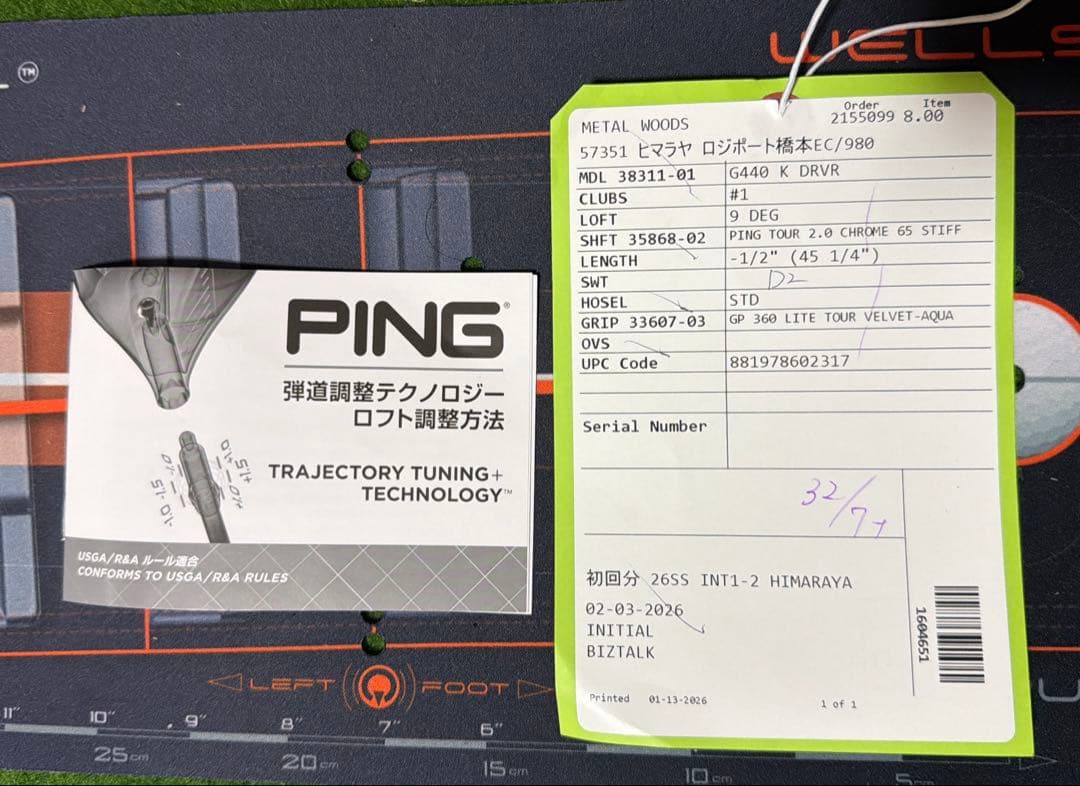 TM
WELLS
PING®
弾道調整テクノロジー
ロフト調整方法
TRAJECTORY TUNING+
TECHNOLOGY™
USGA/R&A ルール適合
CONFORMS TO USGA/R&A RULES
Order Item
METAL WOODS 2155099 8.00
57351 ヒマラヤ ロジポート橋本EC/980
MDL 38311-01 G440 K DRVR
CLUBS #1
LOFT 9 DEG
SHFT 35868-02 PING TOUR 2.0 CHROME 65 STIFF
LENGTH -1/2" (45 1/4")
SWT D2
HOSEL STD
GRIP 33607-03 GP 360 LITE TOUR VELVET-AQUA
OVS
UPC Code 881978602317
Serial Number
32/7+
初回分 26SS INT1-2 HIMARAYA
02-03-2026
INITIAL
BIZTALK
1604651
Printed 01-13-2026 1 of 1
LEFT FOOT
11" 10" 9" 8" 7" 6"
25cm 20cm 15cm 10cm 5cm